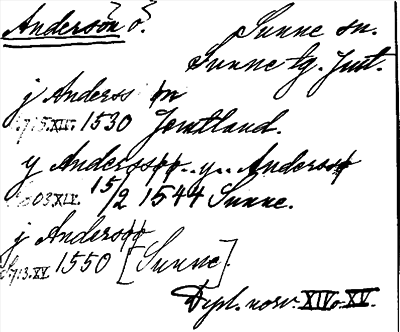 Andersön ö. Sunne sn.
Sunne tg. Jmt.
j Anderss øn
1530 Jemtland.
y Anderssøø..y.. Anderssø
15/2 1544 Sunne.
j Andersøø
1550 [Sunne].
Dipl. norv. XIV o. XV.